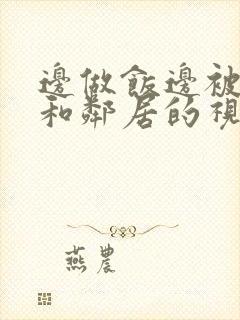 邊做飯邊被
和鄰居的視
燕農